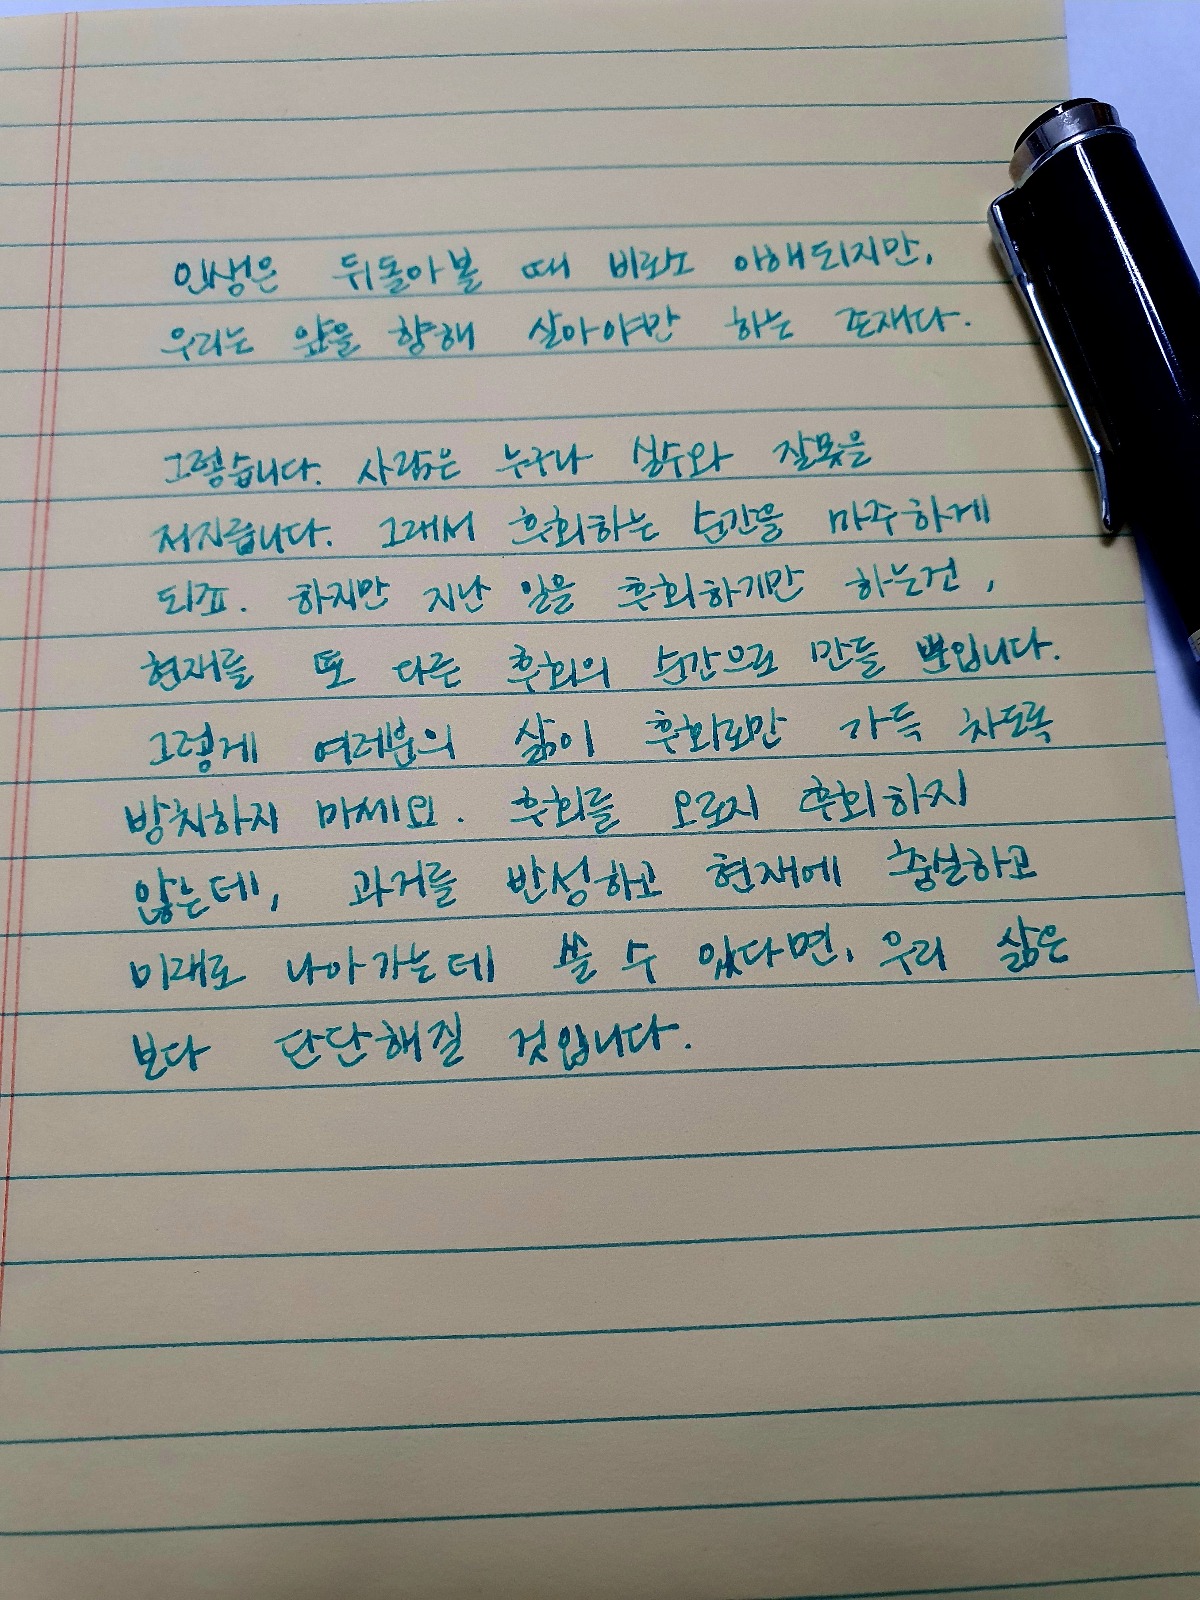 인생은 뒤돌아볼 때 비로소 이해되지만,
우리는 앞을 향해 살아야만 하는 존재다.
그렇습니다. 사람은 누구나 실수와 잘못을
저지릅니다. 그래서 후회하는 순간을 마주하게
되죠. 하지만 지난 일을 후회하기만 하는건,
현재를 또 다른 후회의 순간으로 만들 뿐입니다.
그렇게 여러분의 삶이 후회로만 가득 차도록
방치하지 마세요. 후회를 오로지 후회하지
않는데, 과거를 반성하고 현재에 충실하고
미래로 나아가는데 쓸 수 있다면, 우리 삶은
보다 단단해질 것입니다.